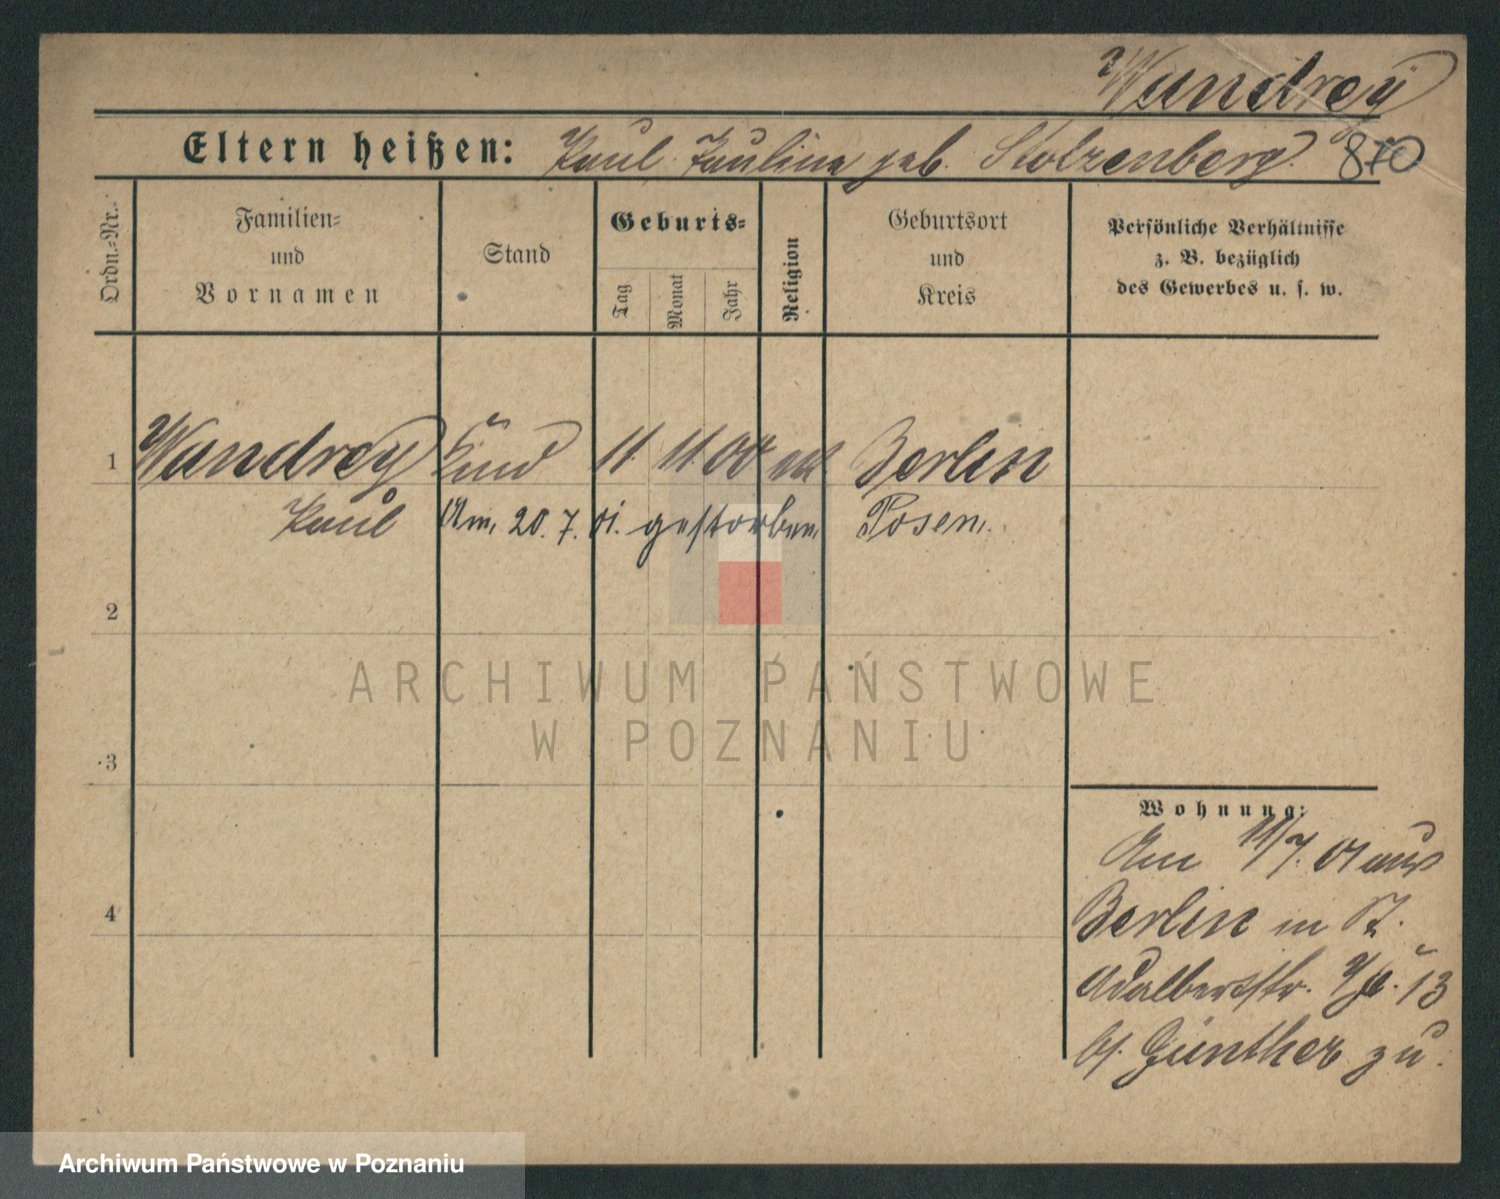 Wandrey
Eltern heißen: Paul Pauline geb. Stolzenberg. 870
Ordn.-Nr.
Familien-
und
Vornamen
Stand
Geburts-
Tag
Monat
Jahr
Religion
Geburtsort
und
Kreis
Persönliche Verhältnisse
z. B. bezüglich
des Gewerbes u. s. w.
1 Wandrey Kind 11. 11. 00 Berlin
Paul Am 20. 7. 01. gestorben Posen.
2
3
4
Wohnung:
Am 11/7. 01 aus
Berlin in St.
Adalbertstr. 13
b/. Günther zu.
ARCHIWUM PAŃSTWOWE
W POZNANIU
Archiwum Państwowe w Poznaniu